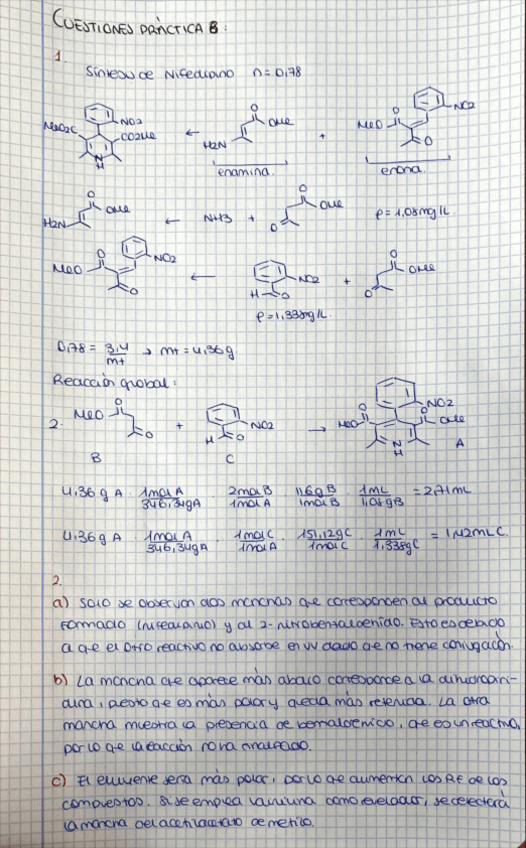 CUESTIONES PRÁCTICA B:
1.
Síntesis de Nifedipino n=0,78
MeO2C NO2 CO2Me N H ← H2N O OMe + MeO O O NO2
enamina. enona.
H2N O OMe ← NH3 + O O OMe ρ=1,08mg/L
MeO O O NO2 ← H O NO2 + O O OMe
ρ=1,338g/L.
0,78 = 3,4/mt → mt=4,36g
Reacción global:
2. MeO O O + H O NO2 → MeO O NO2 O OMe N H
B C A
4,36 g A · 1mol A/346,34gA · 2mol B/1mol A · 116g B/1mol B · 1mL/1,08gB = 2,71mL
4,36 g A · 1mol A/346,34gA · 1mol C/1mol A · 151,12g C/1mol C · 1mL/1,338gC = 1,42mL C.
2.
a) Solo se observan dos manchas que corresponden al producto
formado (nifedipino) y al 2-nitrobenzaldehído. Esto es debido
a que el otro reactivo no absorbe en UV dado que no tiene conjugación.
b) La mancha que aparece más abajo corresponde a la dihidropiri-
dina, puesto que es más polar y queda más retenida. La otra
mancha muestra la presencia de que es un reactivo,
por lo que la reacción no ha finalizado.
c) El eluyente sería más polar, por lo que aumentan los Rf de los
compuestos. Si se emplea como revelador, se detectará
la mancha del acetilacetato de metilo.